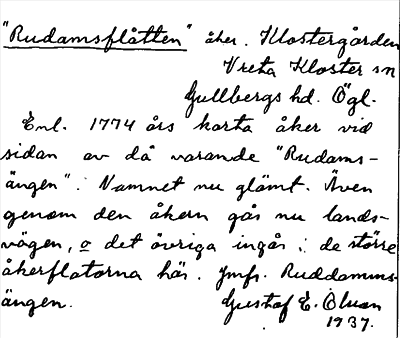 "Rudamsflåtten" åker. Klostergården
Vreta Kloster sn
Gullbergs hd. Ögl.
Enl. 1774 års karta åker vid
sidan av då varande "Rudams-
ängen". Namnet nu glömt. Även
genom den åkern går nu lands-
vägen, o det övriga ingår i de större
åkerflatorna här. Jmfr. Ruddamms-
ängen.
Gustaf E. Olsson
1937.